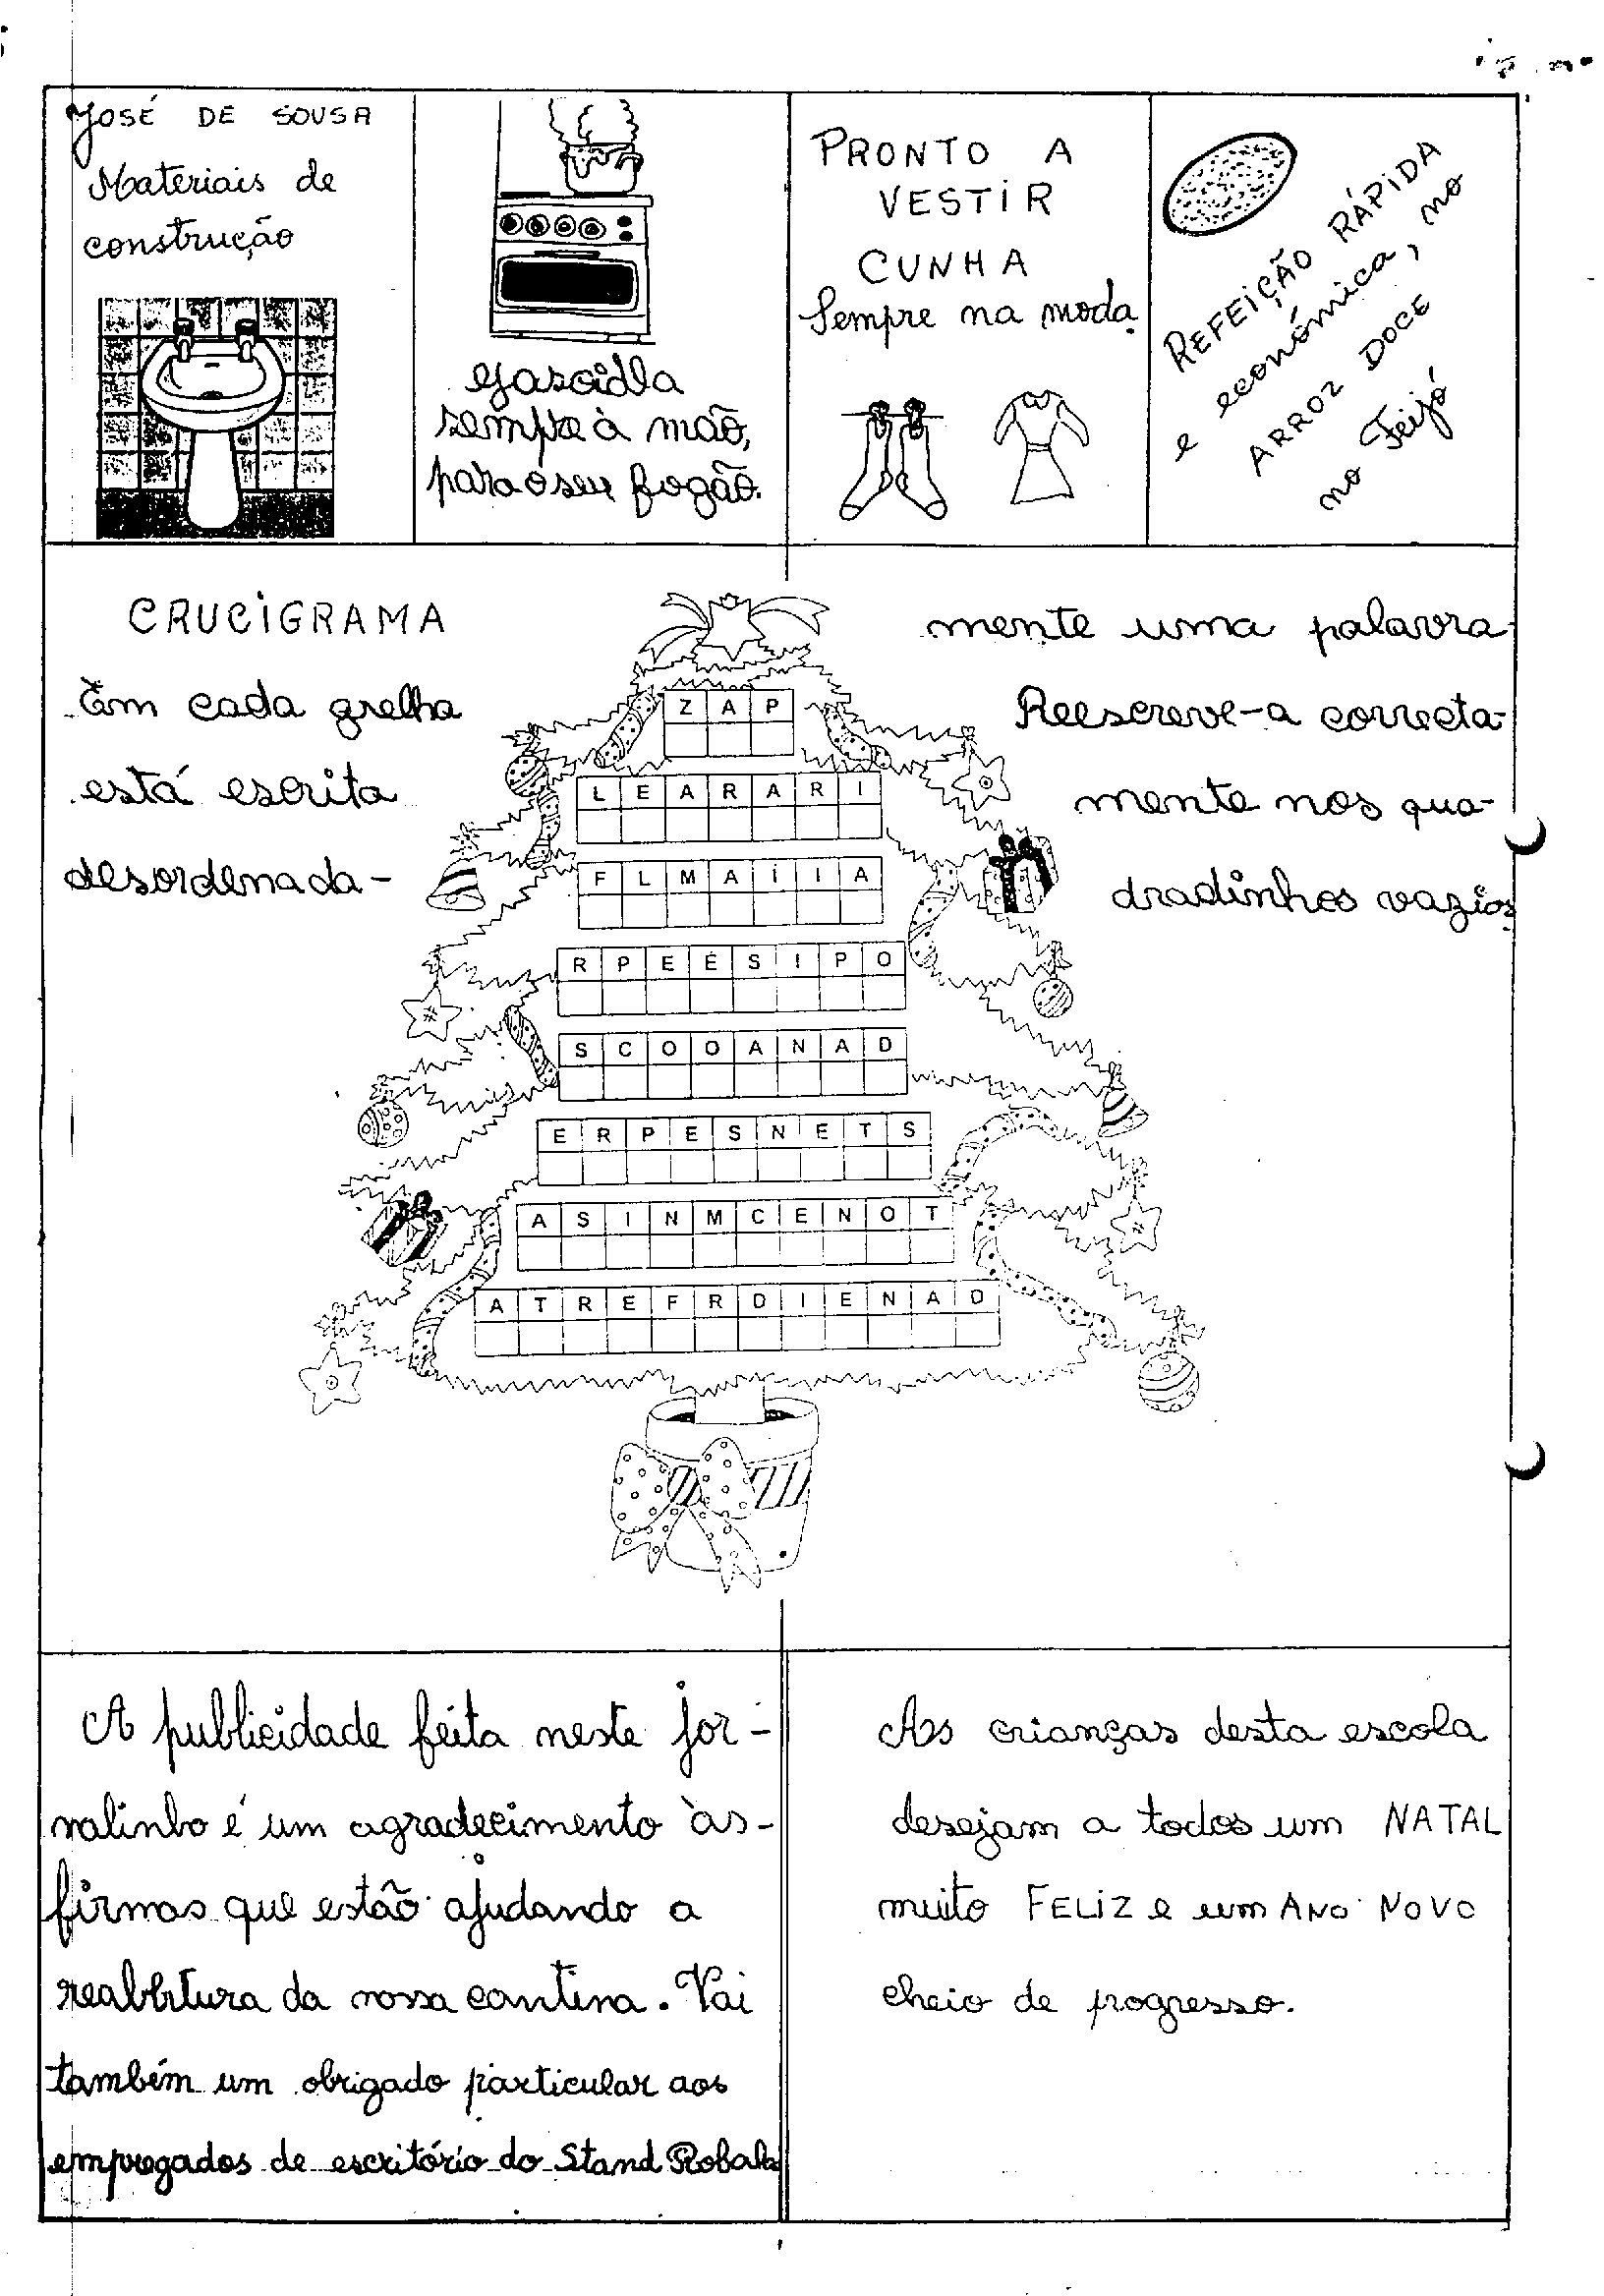 JOSÉ DE SOUSA
Materiais de
construção
Gascidla
sempre à mão,
para o seu fogão.
PRONTO A
VESTIR
CUNHA
Sempre na moda
REFEIÇÃO RÁPIDA
e económica, no
ARROZ DOCE
no Feijó
CRUCIGRAMA
Em cada grelha
está escrita
desordenada-
mente uma palavra.
Reescreve-a correcta-
mente nos qua-
dradinhos vazios.
Z A P
L E A R A R I
F L M A Í I A
R P E É S I P O
S C O O A N A D
E R P E S N E T S
A S I N M C E N O T
A T R E F R D I E N A D
A publicidade feita neste jor-
nalinho é um agradecimento às
firmas que estão ajudando a
reabertura da nossa cantina. Vai
também um obrigado particular aos
empregados de escritório do Stand Robala
As crianças desta escola
desejam a todos um NATAL
muito FELIZ e um ANO NOVO
cheio de progresso.